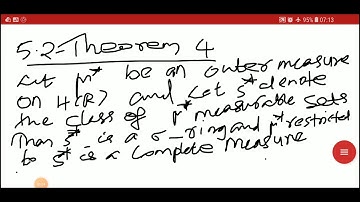 95%
07:13
5.2-Theorem 4
Let μ* be an outer measure
on H(R) and Let S* denote
the class of μ* measurable sets
Then S* is a σ-ring and μ* restricted
to S* is a complete measure